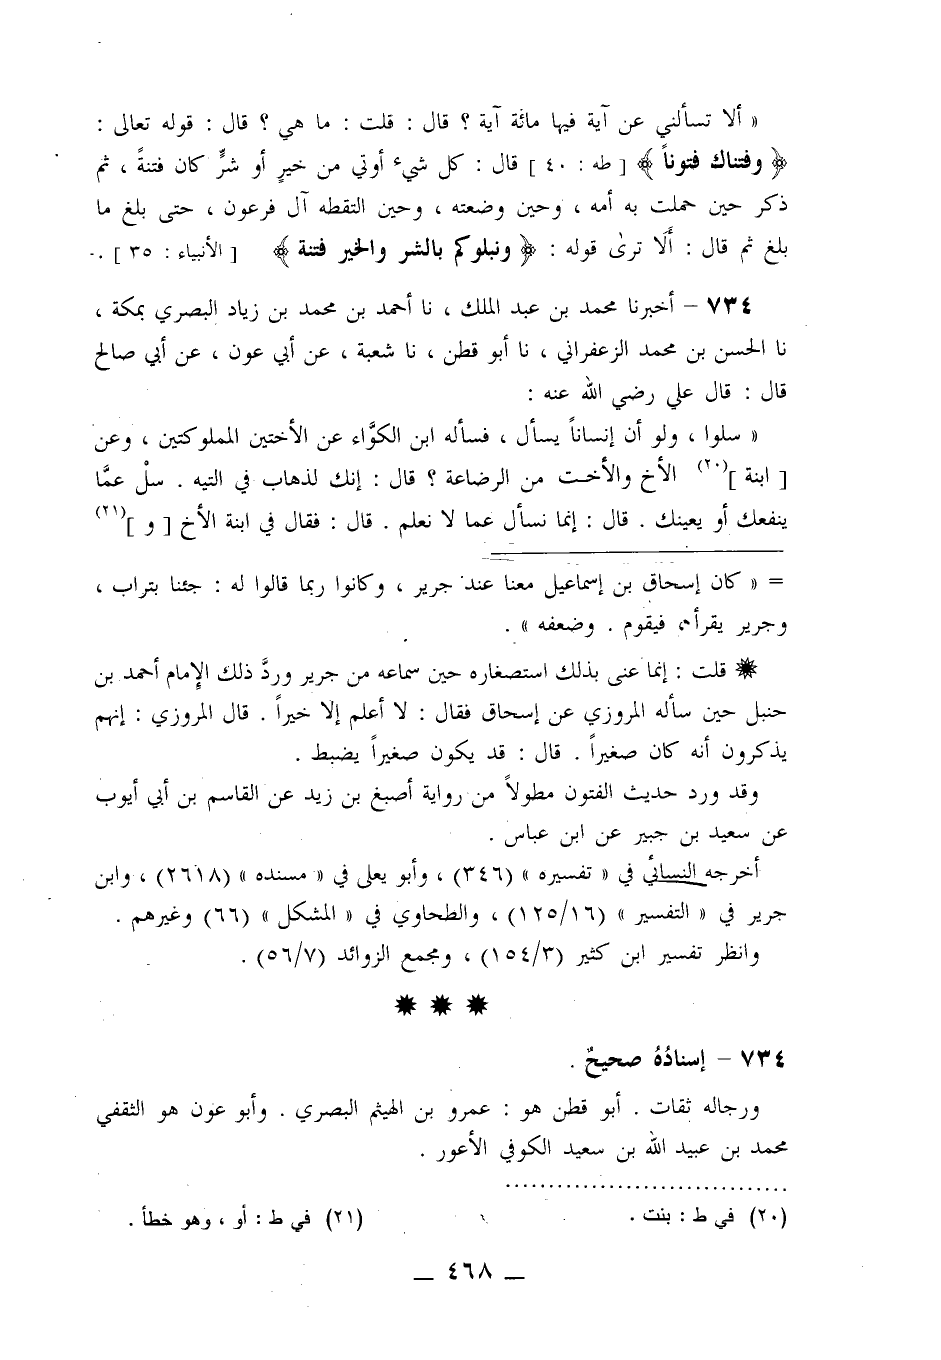 « ألا تسألني عن آية فيها مائة آية ؟ قال : قلت : ما هي ؟ قال : قوله تعالى :
﴿ وفتناك فتوناً ﴾ [ طه : ٤٠ ] قال : كل شيء أوتي من خيرٍ أو شرٍّ كان فتنةً ، ثم
ذكر حين حملت به أمه ، وحين وضعته ، وحين التقطه آل فرعون ، حتى بلغ ما
بلغ ثم قال : أَلا ترىٰ قوله : ﴿ ونبلوكم بالشر والخير فتنة ﴾ [ الأنبياء : ٣٥ ] .
٧٣٤ – أخبرنا محمد بن عبد الملك ، نا أحمد بن محمد بن زياد البصري بمكة ،
نا الحسن بن محمد الزعفراني ، نا أبو قطن ، نا شعبة ، عن أبي عون ، عن أبي صالح
قال : قال علي رضي الله عنه :
« سلوا ، ولو أن إنساناً يسأل ، فسأله ابن الكوَّاء عن الأختين المملوكتين ، وعن
[ ابنة ](٢٠) الأخ والأخت من الرضاعة ؟ قال : إنك لذهاب في التيه . سلْ عمَّا
ينفعك أو يعينك . قال : إنما نسأل عما لا نعلم . قال : فقال في ابنة الأخ [ و ](٢١)
= « كان إسحاق بن إسماعيل معنا عند جرير ، وكانوا ربما قالوا له : جئنا بتراب ،
وجرير يقرأ ، فيقوم . وضعفه » .
✸ قلت : إنما عنى بذلك استصغاره حين سماعه من جرير وردَّ ذلك الإمام أحمد بن
حنبل حين سأله المروزي عن إسحاق فقال : لا أعلم إلا خيراً . قال المروزي : إنهم
يذكرون أنه كان صغيراً . قال : قد يكون صغيراً يضبط .
وقد ورد حديث الفتون مطولاً من رواية أصبغ بن زيد عن القاسم بن أبي أيوب
عن سعيد بن جبير عن ابن عباس .
أخرجه النسائي في « تفسيره » (٣٤٦) ، وأبو يعلى في « مسنده » (٢٦١٨) ، وابن
جرير في « التفسير » (١٢٥/١٦) ، والطحاوي في « المشكل » (٦٦) وغيرهم .
وانظر تفسير ابن كثير (١٥٤/٣) ، ومجمع الزوائد (٥٦/٧) .
✸ ✸ ✸
٧٣٤ – إسنادُهُ صحيحٌ .
ورجاله ثقات . أبو قطن هو : عمرو بن الهيثم البصري . وأبو عون هو الثقفي
محمد بن عبيد الله بن سعيد الكوفي الأعور .
(٢٠) في ط : بنت . (٢١) في ط : أو ، وهو خطأ .
– ٤٦٨ –